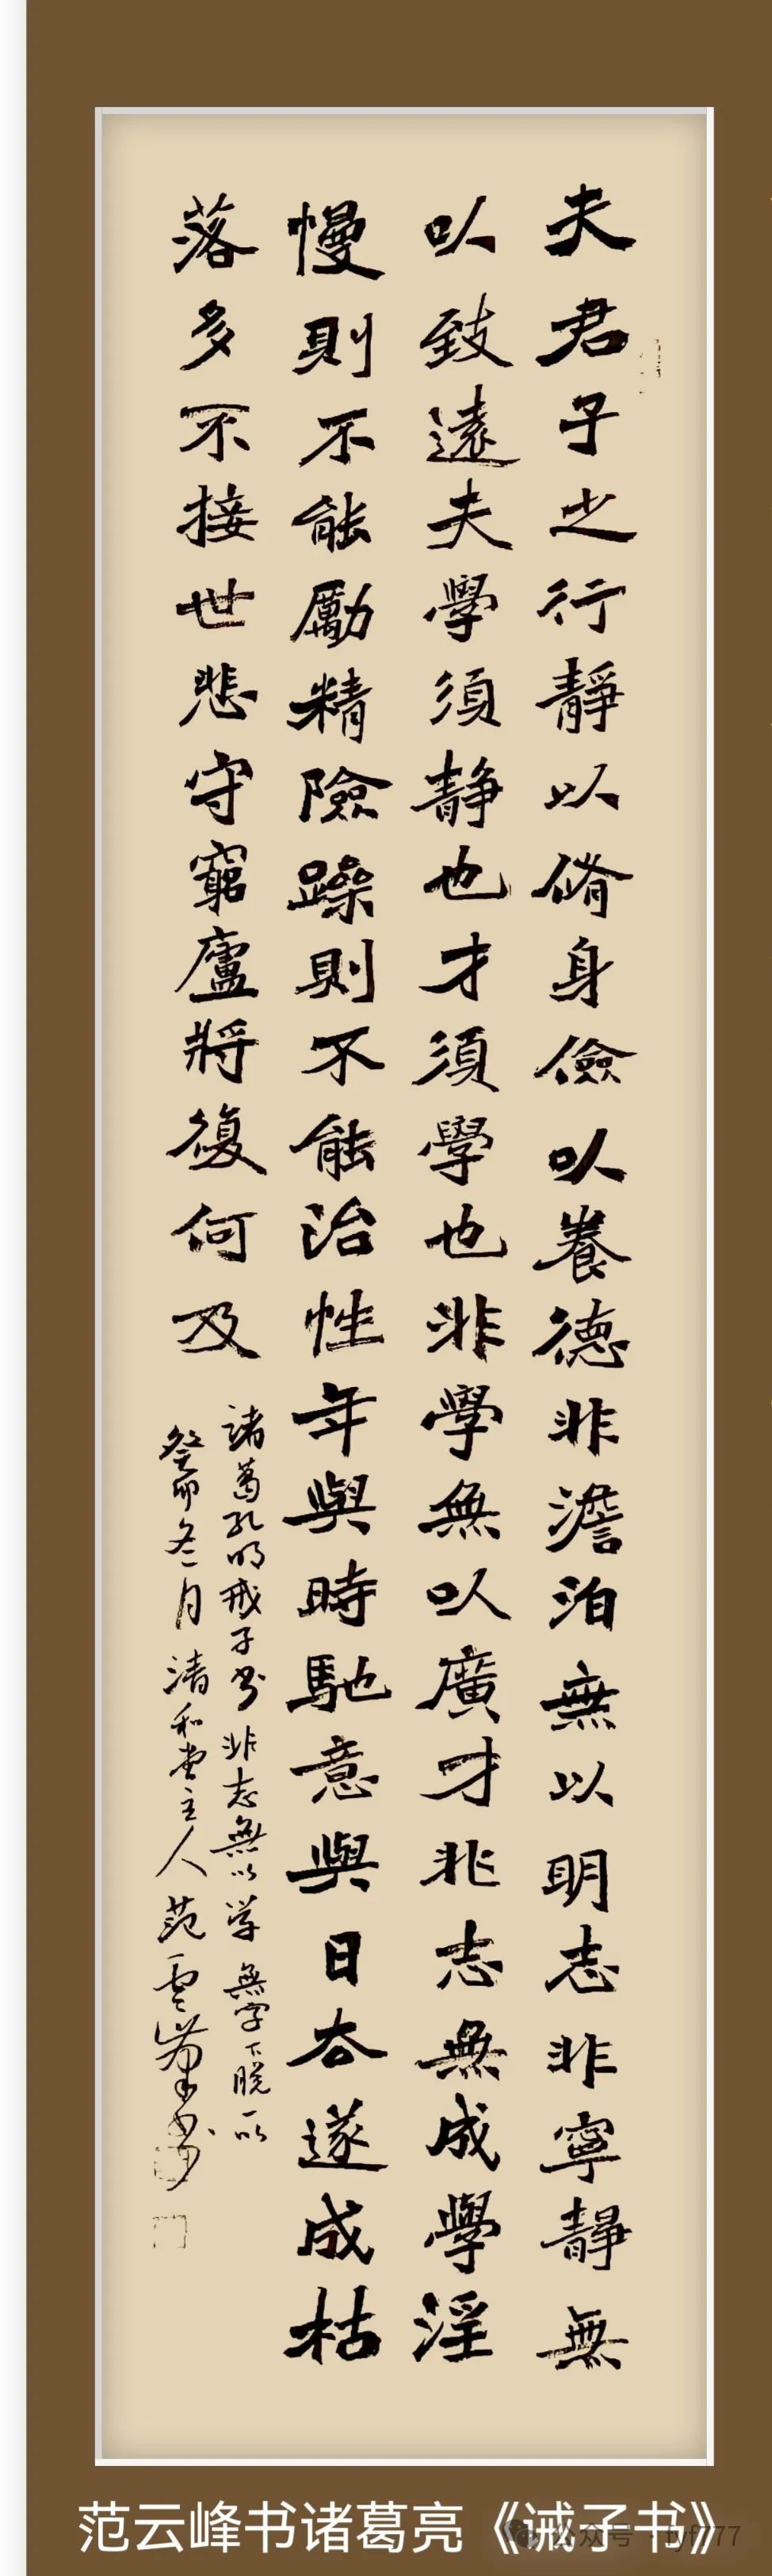 夫君子之行靜以脩身儉以養德非澹泊無以明志非寧靜無
以致遠夫學須静也才須學也非學無以廣才非志無成學淫
慢則不能勵精險躁則不能治性年與時馳意與日去遂成枯
落多不接世悲守窮廬將復何及
諸葛孔明戒子書非志無以学無字下脱一以
癸卯冬月清和堂主人范雲峯书
范云峰书诸葛亮《诫子书》
公众号·fyf777